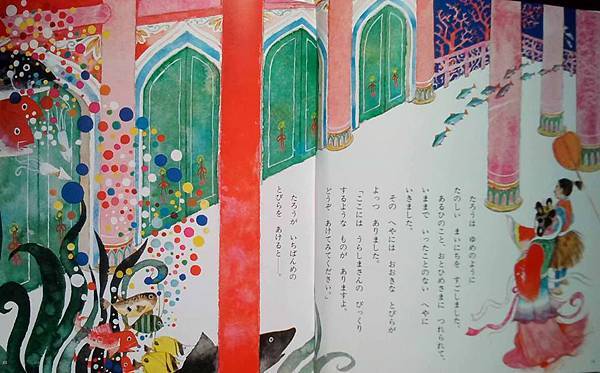 たろうは ゆめのように
たのしい まいにちを すごしました。
あるひのこと、おとひめさまに つれられて、
いままで いったことのない へやに
いきました。
その へやには おおきな とびらが
よっつ ありました。
「ここには うらしまさんの びっくり
するような ものが ありますよ。
どうぞ あけてみてください。」
たろうが いちばんめの
とびらを あけると──